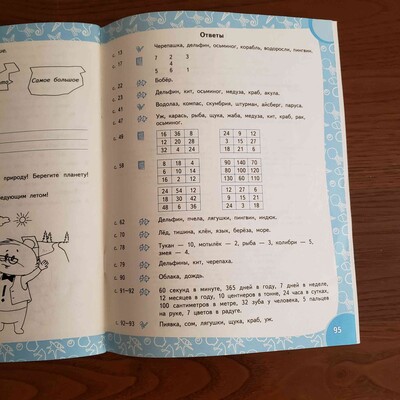 Ответы
с. 15 Черепашка, дельфин, осьминог, корабль, водоросли, пингвин.
с. 17 7 2 3
4
5 6 1
с. 22 Бобёр.
с. 23 Дельфин, кит, осьминог, медуза, краб, акула.
с. 41 Водолаз, компас, скумбрия, штурман, айсберг, паруса.
с. 47 Уж, карась, рыба, щука, жаба, медуза, кит, краб, рак,
осьминог.
с. 49 16 36 8 24 9 12
12 20 28 3 15 27
32 4 24 18 21 6
с. 59 8 18 4 90 140 70
6 10 14 80 100 120
16 2 12 130 60 110
24 54 12 24 6 15
18 30 42 12 9 21
48 6 36 24 3 18
с. 62 Дельфин, пчела, лягушки, пингвин, индюк.
с. 70 Лёд, тишина, клён, язык, берёза, море.
с. 78 Тукан — 10, мотылёк — 2, рыба — 3, колибри — 5,
змея — 4.
с. 79 Дельфины, кит, черепаха.
с. 90 Облака, дождь.
с. 91—92 60 секунд в минуте, 365 дней в году, 7 дней в неделе,
12 месяцев в году, 10 центнеров в тонне, 24 часа в сутках,
100 сантиметров в метре, 32 зуба у человека, 5 пальцев
на руке, 7 цветов в радуге.
с. 92—93 Пиявка, сом, лягушки, щука, краб, уж.
95
Самое большое
природу! Берегите планету!
едующим летом!